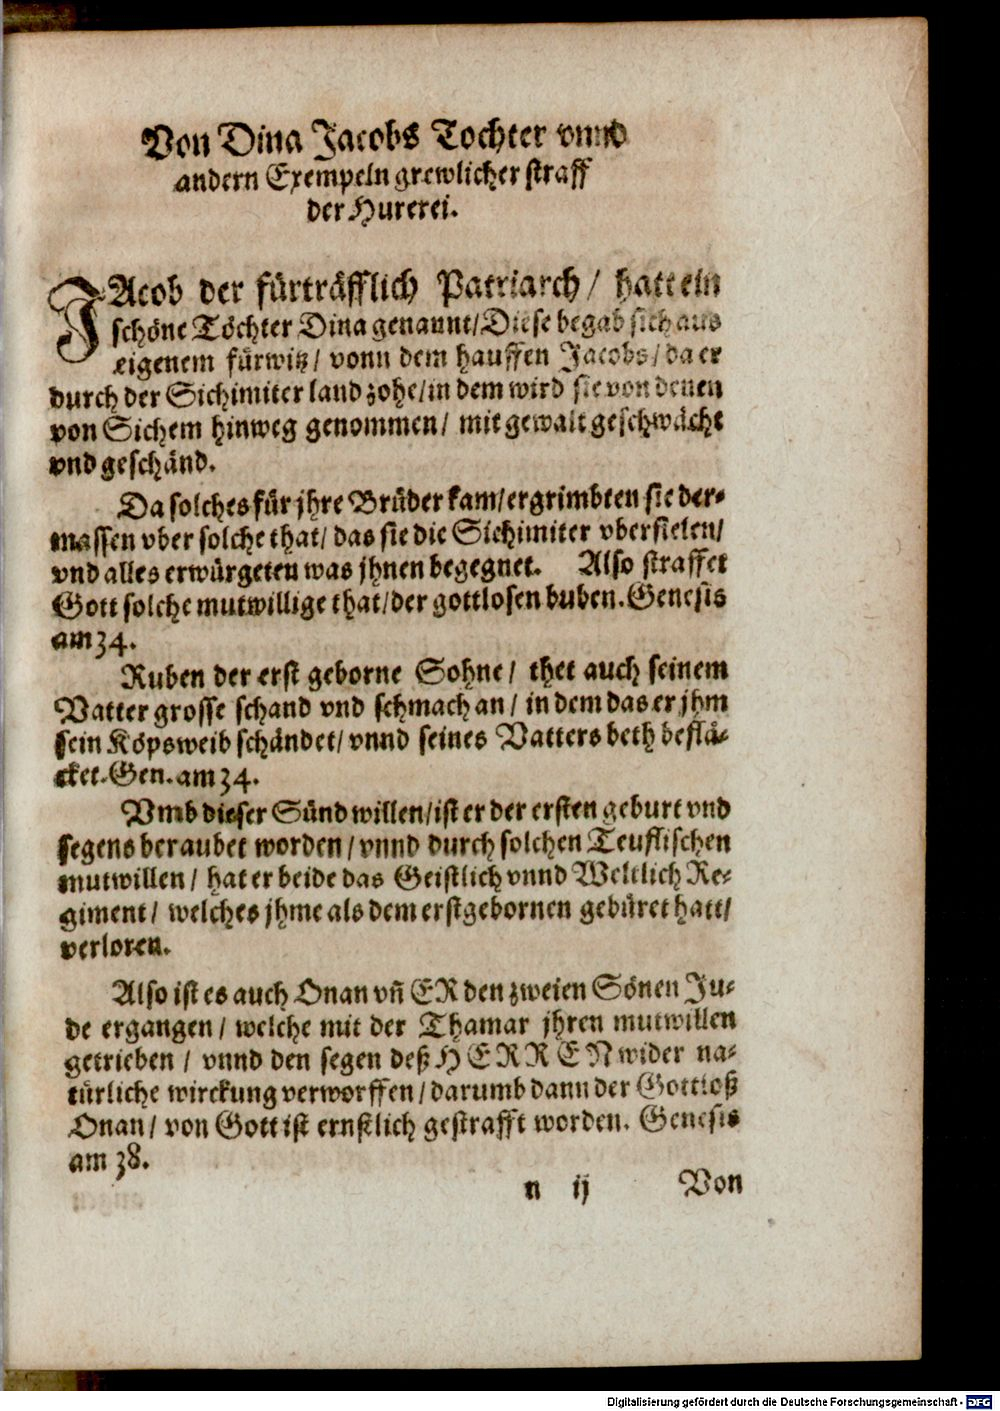 Von Dina Jacobs Tochter vnnd
andern Exempeln grewlicher straff
der Hurerei.
JAcob der fürträfflich Patriarch / hatt ein
schöne Töchter Dina genannt/Diese begab sich aus
eigenem fürwitz/ vonn dem hauffen Jacobs/ da er
durch der Sichimiter land zohe/in dem wird sie von denen
von Sichem hinweg genommen/ mit gewalt geschwächt
vnd geschänd.
Da solches für jhre Brüder kam/ergrimbten sie der-
massen vber solche that/ das sie die Sichimiter vberfielen/
vnd alles erwürgeten was jhnen begegnet. Also straffet
Gott solche mutwillige that/der gottlosen buben.Genesis
am 34.
Ruben der erst geborne Sohne/ thet auch seinem
Vatter grosse schand vnd schmach an/ in dem das er jhm
sein Köpsweib schändet/ vnnd seines Vatters beth beflä-
cket.Gen. am 34.
Vmb dieser Sünd willen/ist er der ersten geburt vnd
segens beraubet worden/ vnnd durch solchen Teuflischen
mutwillen/ hat er beide das Geistlich vnnd Weltlich Re-
giment/ welches jhme als dem erstgebornen gebüret hatt/
verloren.
Also ist es auch Onan vñ ER den zweien Sönen Ju-
de ergangen/ welche mit der Thamar jhren mutwillen
getrieben / vnnd den segen deß HERREN wider na-
türliche wirckung verworffen/darumb dann der Gottloß
Onan/ von Gott ist ernstlich gestrafft worden. Genesis
am 38.
n ij Von
Digitalisierung gefördert durch die Deutsche Forschungsgemeinschaft - DFG